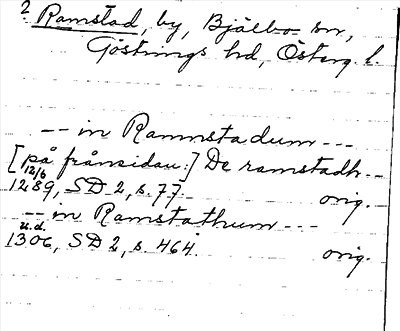 2 Ramstad, by, Bjälbo sn,
Göstrings hd, Österg. l.
-- in Rammstadum ---
[på frånsidan:] De ramstadh --
12/6
1289, SD 2, s. 77. orig.
-- in Ramstathum ---
u.d.
1306, SD 2, s. 464. orig.